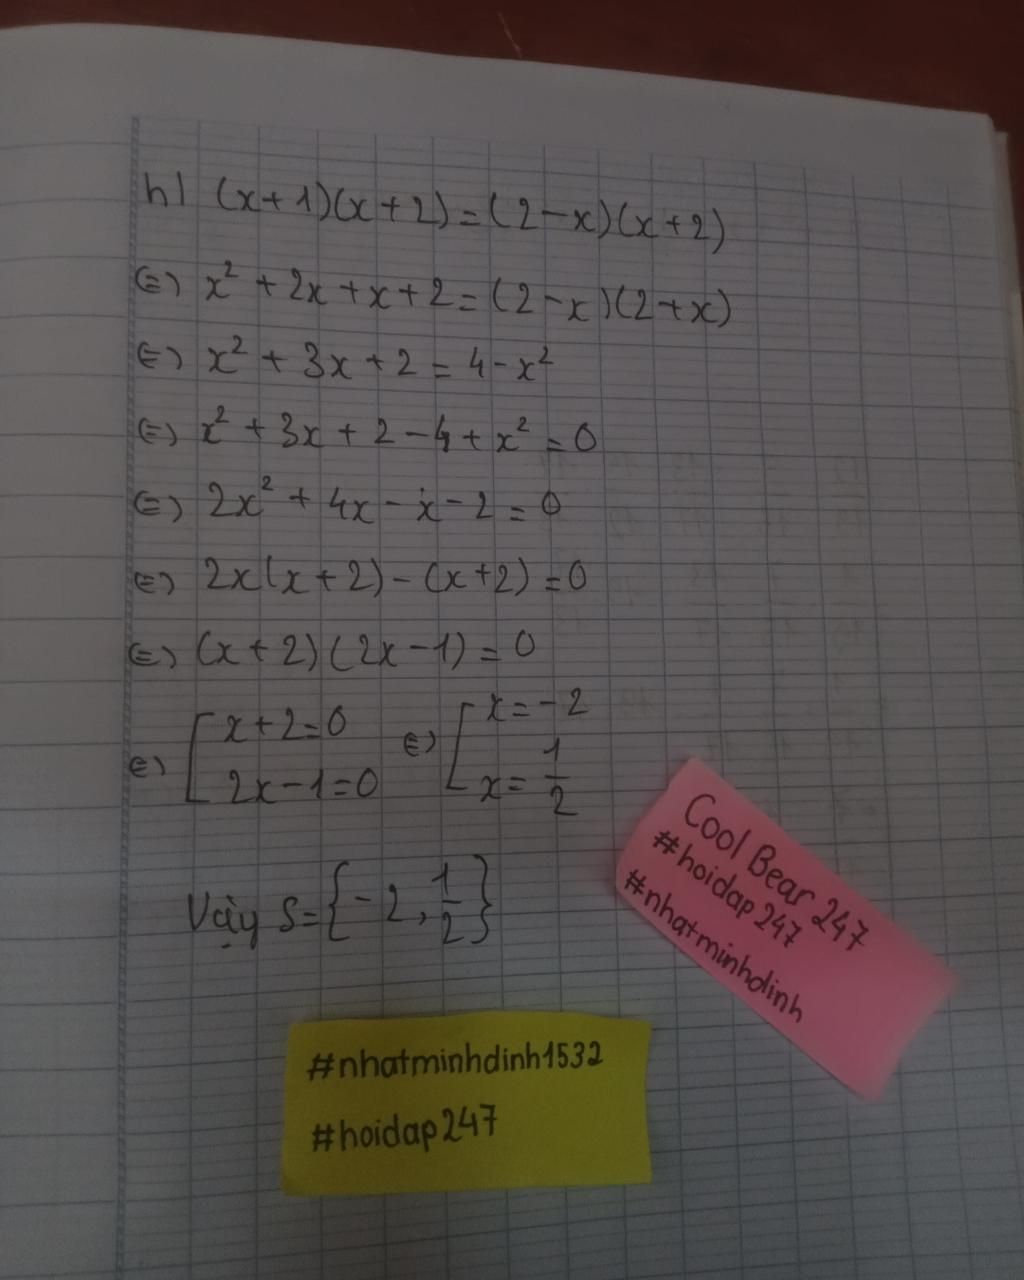 h) (x+1)(x+2)=(2-x)(x+2)
(=) x² + 2x + x + 2 = (2-x)(2+x)
(=) x² + 3x + 2 = 4 - x²
(=) x² + 3x + 2 - 4 + x² = 0
(=) 2x² + 4x - x - 2 = 0
(=) 2x(x+2) - (x+2) = 0
(=) (x+2)(2x-1) = 0
(=) [ x+2=0 (=) [ x=-2
2x-1=0 x= 1/2
Vậy S={-2, 1/2}
Cool Bear 247
#hoidap247
#nhatminhdinh
#nhatminhdinh1532
#hoidap247